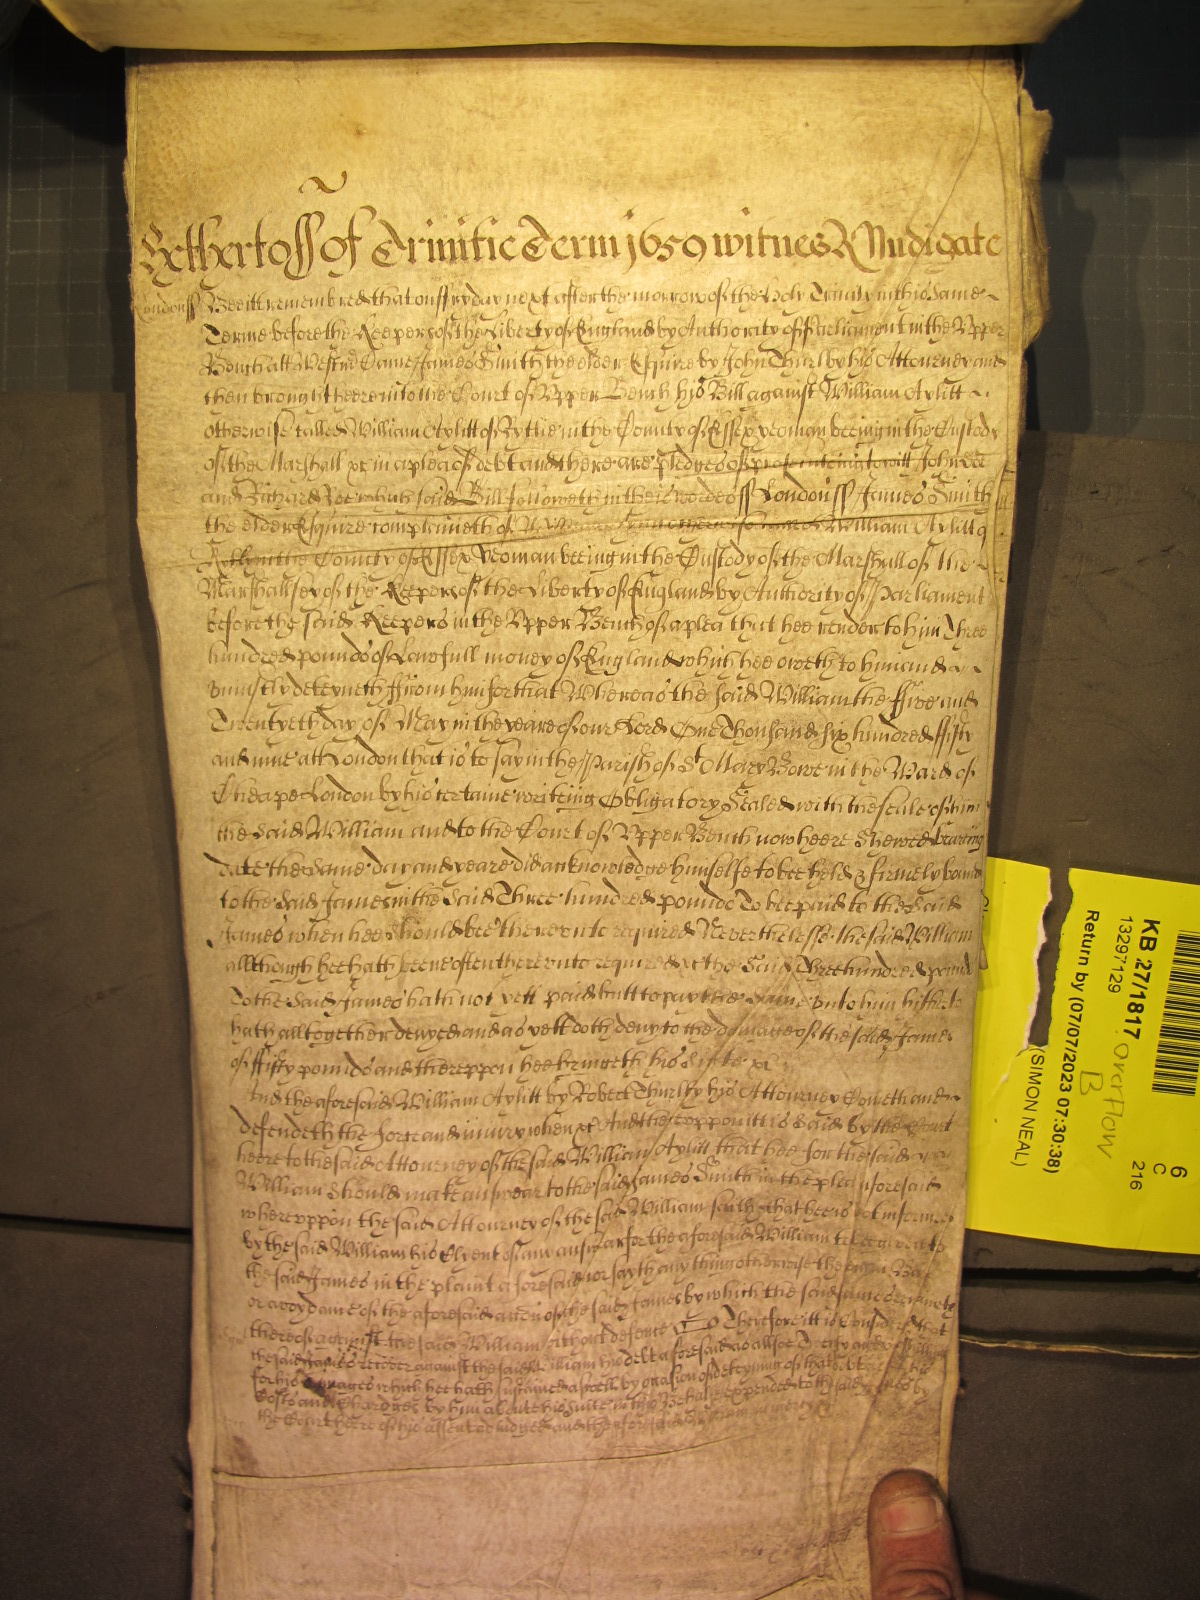 yet hertofore of Trinitie Terme 1659 witnes R Nudigate
Londonss Bee itt remembred that on ffryday next after the morrow of the holy Trinity in this same
Terme before the Keepers of the Liberty of England by Authority of Parliament in the Upper
Bench att Westmr Came James Smith the elder Esquire by John Thurlby his Attourney and
then brought heere into the Court of Upper Bench his Bill against William Aylitt
otherwise called William Aylitt of Rythe in the County of Essex yeoman beeing in the Custody
of the Marshall &c in a plea of debt and there are pledges of prosecuteing to witt John Dee
and Richard Ree which said Bill followeth in these wordes ss London ss James Smith
the elder Esquire complaineth of William Aylitt of
in the County of Essex Yeoman beeing in the Custody of the Marshall of the
Marshallsey of the Keepers of the Liberty of England by Authority of Parliament
before the said Keepers in the Upper Bench of a plea that hee render to him Three
hundred pounds of Lawfull money of England which hee oweth to him and
uniustly deteyneth ffrom him for that Whereas the said William the ffive and
Twentyeth day of May in the yeare of our Lord One Thousand six hundred ffifty
and nine att London that is to say in the Parish of St Mary Bowe in the Ward of
Cheape London by his certaine writeing Obligatory Sealed with the seale of him
the said William and to the Court of Upper Bench now heere shewed bearing
date the same day and yeare did acknowledge himselfe to bee held & firmely bound
to the said James in the said Three hundred pounds To bee paid to the said
James when hee should bee thereunto required Neverthelesse the said William
allthough hee hath beene often thereunto required &c the said Three hundred pounds
To the said James hath not yett paid butt to pay the same unto him hitherto
hath alltogether denyed and as yett doth deny to the damage of the said James
of ffifty pounds and thereuppon hee bringeth his suite &c
And the aforesaid William Aylitt by Robert Thurlby his Attourney Cometh and
defendeth the force and iniury when &c And thereuppon itt is said by the Court
heere to the said Attourney of the said William Aylitt that hee for the said
William should make answear to the said James Smith in the plea aforesaid
whereuppon the said Attourney of the said William saith that hee is not informed
by the said William his Clyent of any answear for the aforesaid William to bee given to
the said James in the plaint aforesaid nor sayth any thing otherwise
of the aforesaid accon of the said James by which the said James
thereof against the said William without defence Therefore itt is Considered that
the said James recover against the said William his debt aforesaid as allsoe
for his damages which hee hath susteined aswell by occasion of deteyning of that debt as
Costs and Chardges by him about his suite in this Behalfe expended to the said James by
the Court heere of his assent adiudged and the aforesaid William in mercy &c
KB 27/1817
13297129
Return by (07/07/2023 07:30:38)
(SIMON NEAL)
overflow
B
6
C
216